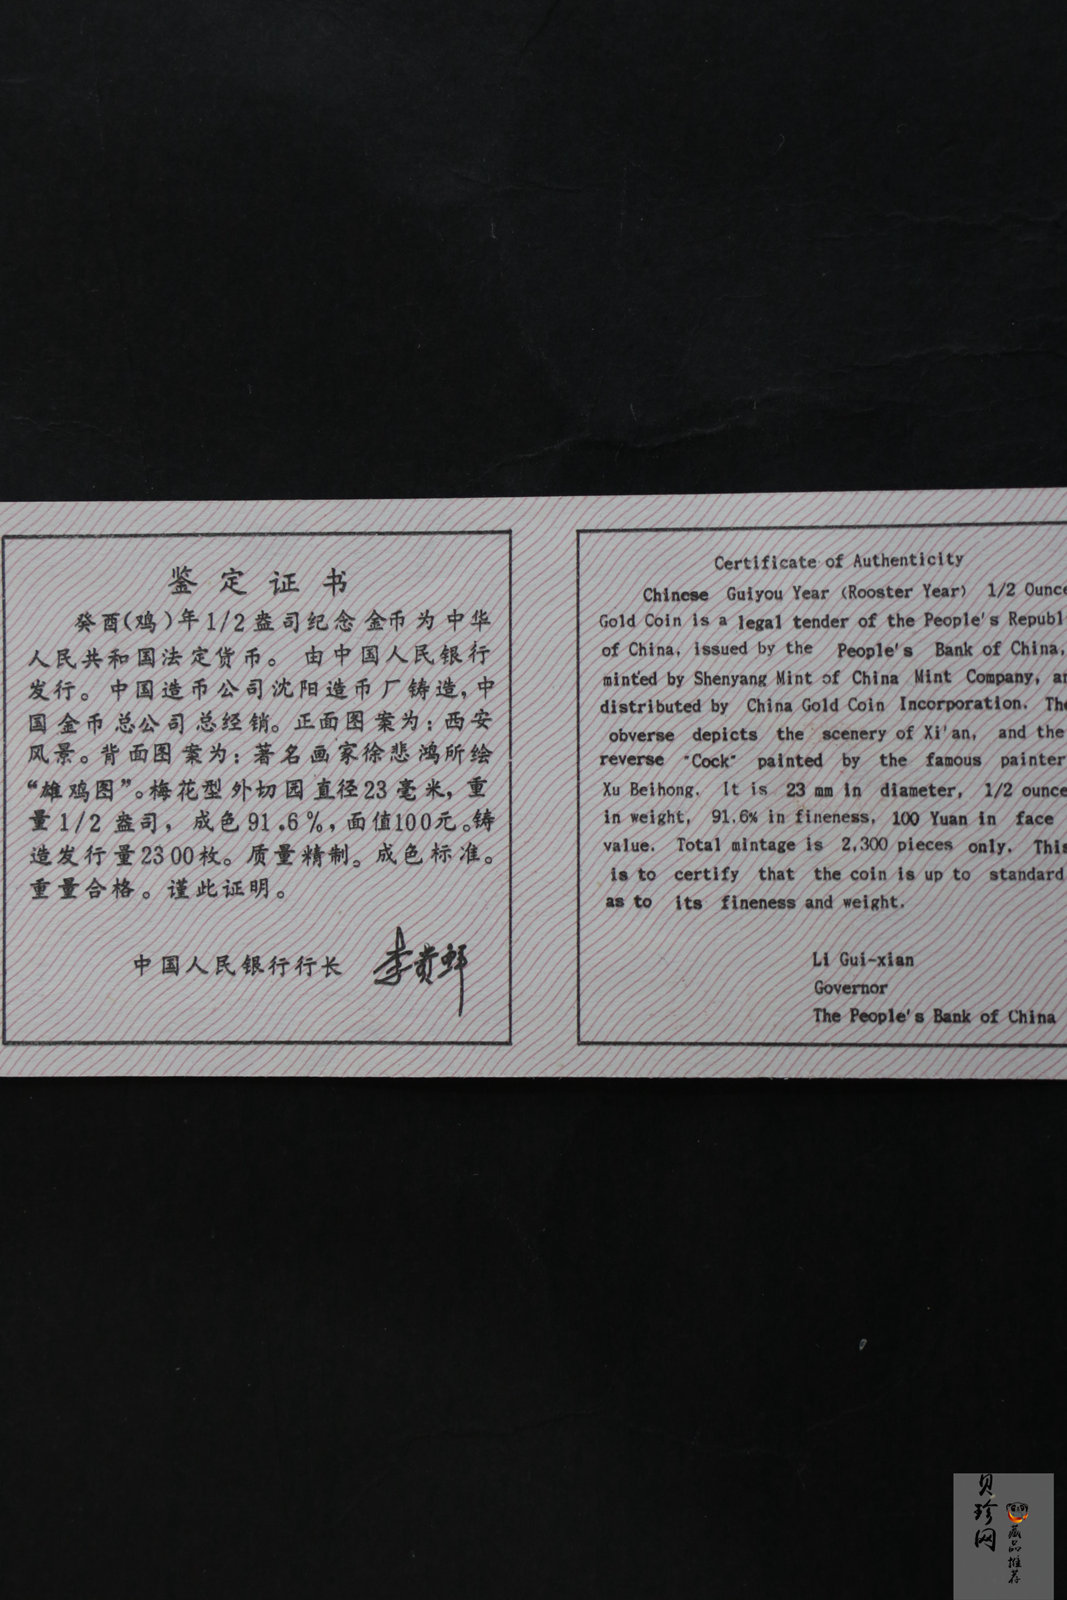 鉴定证书
癸酉(鸡)年1/2盎司纪念金币为中华
人民共和国法定货币。由中国人民银行
发行。中国造币公司沈阳造币厂铸造,中
国金币总公司总经销。正面图案为:西安
风景。背面图案为:著名画家徐悲鸿所绘
“雄鸡图”。梅花型外切园直径23毫米,重
量1/2盎司,成色91.6%,面值100元。铸
造发行量2300枚。质量精制。成色标准。
重量合格。谨此证明。
中国人民银行行长 李贵鲜
Certificate of Authenticity
Chinese Guiyou Year (Rooster Year) 1/2 Ounce
Gold Coin is a legal tender of the People's Republ
of China, issued by the People's Bank of China,
minted by Shenyang Mint of China Mint Company, an
distributed by China Gold Coin Incorporation. The
obverse depicts the scenery of Xi'an, and the
reverse "Cock" painted by the famous painter
Xu Beihong. It is 23 mm in diameter, 1/2 ounce
in weight, 91.6% in fineness, 100 Yuan in face
value. Total mintage is 2,300 pieces only. This
is to certify that the coin is up to standard
as to its fineness and weight.
Li Gui-xian
Governor
The People's Bank of China
贝珍网
藏品推荐